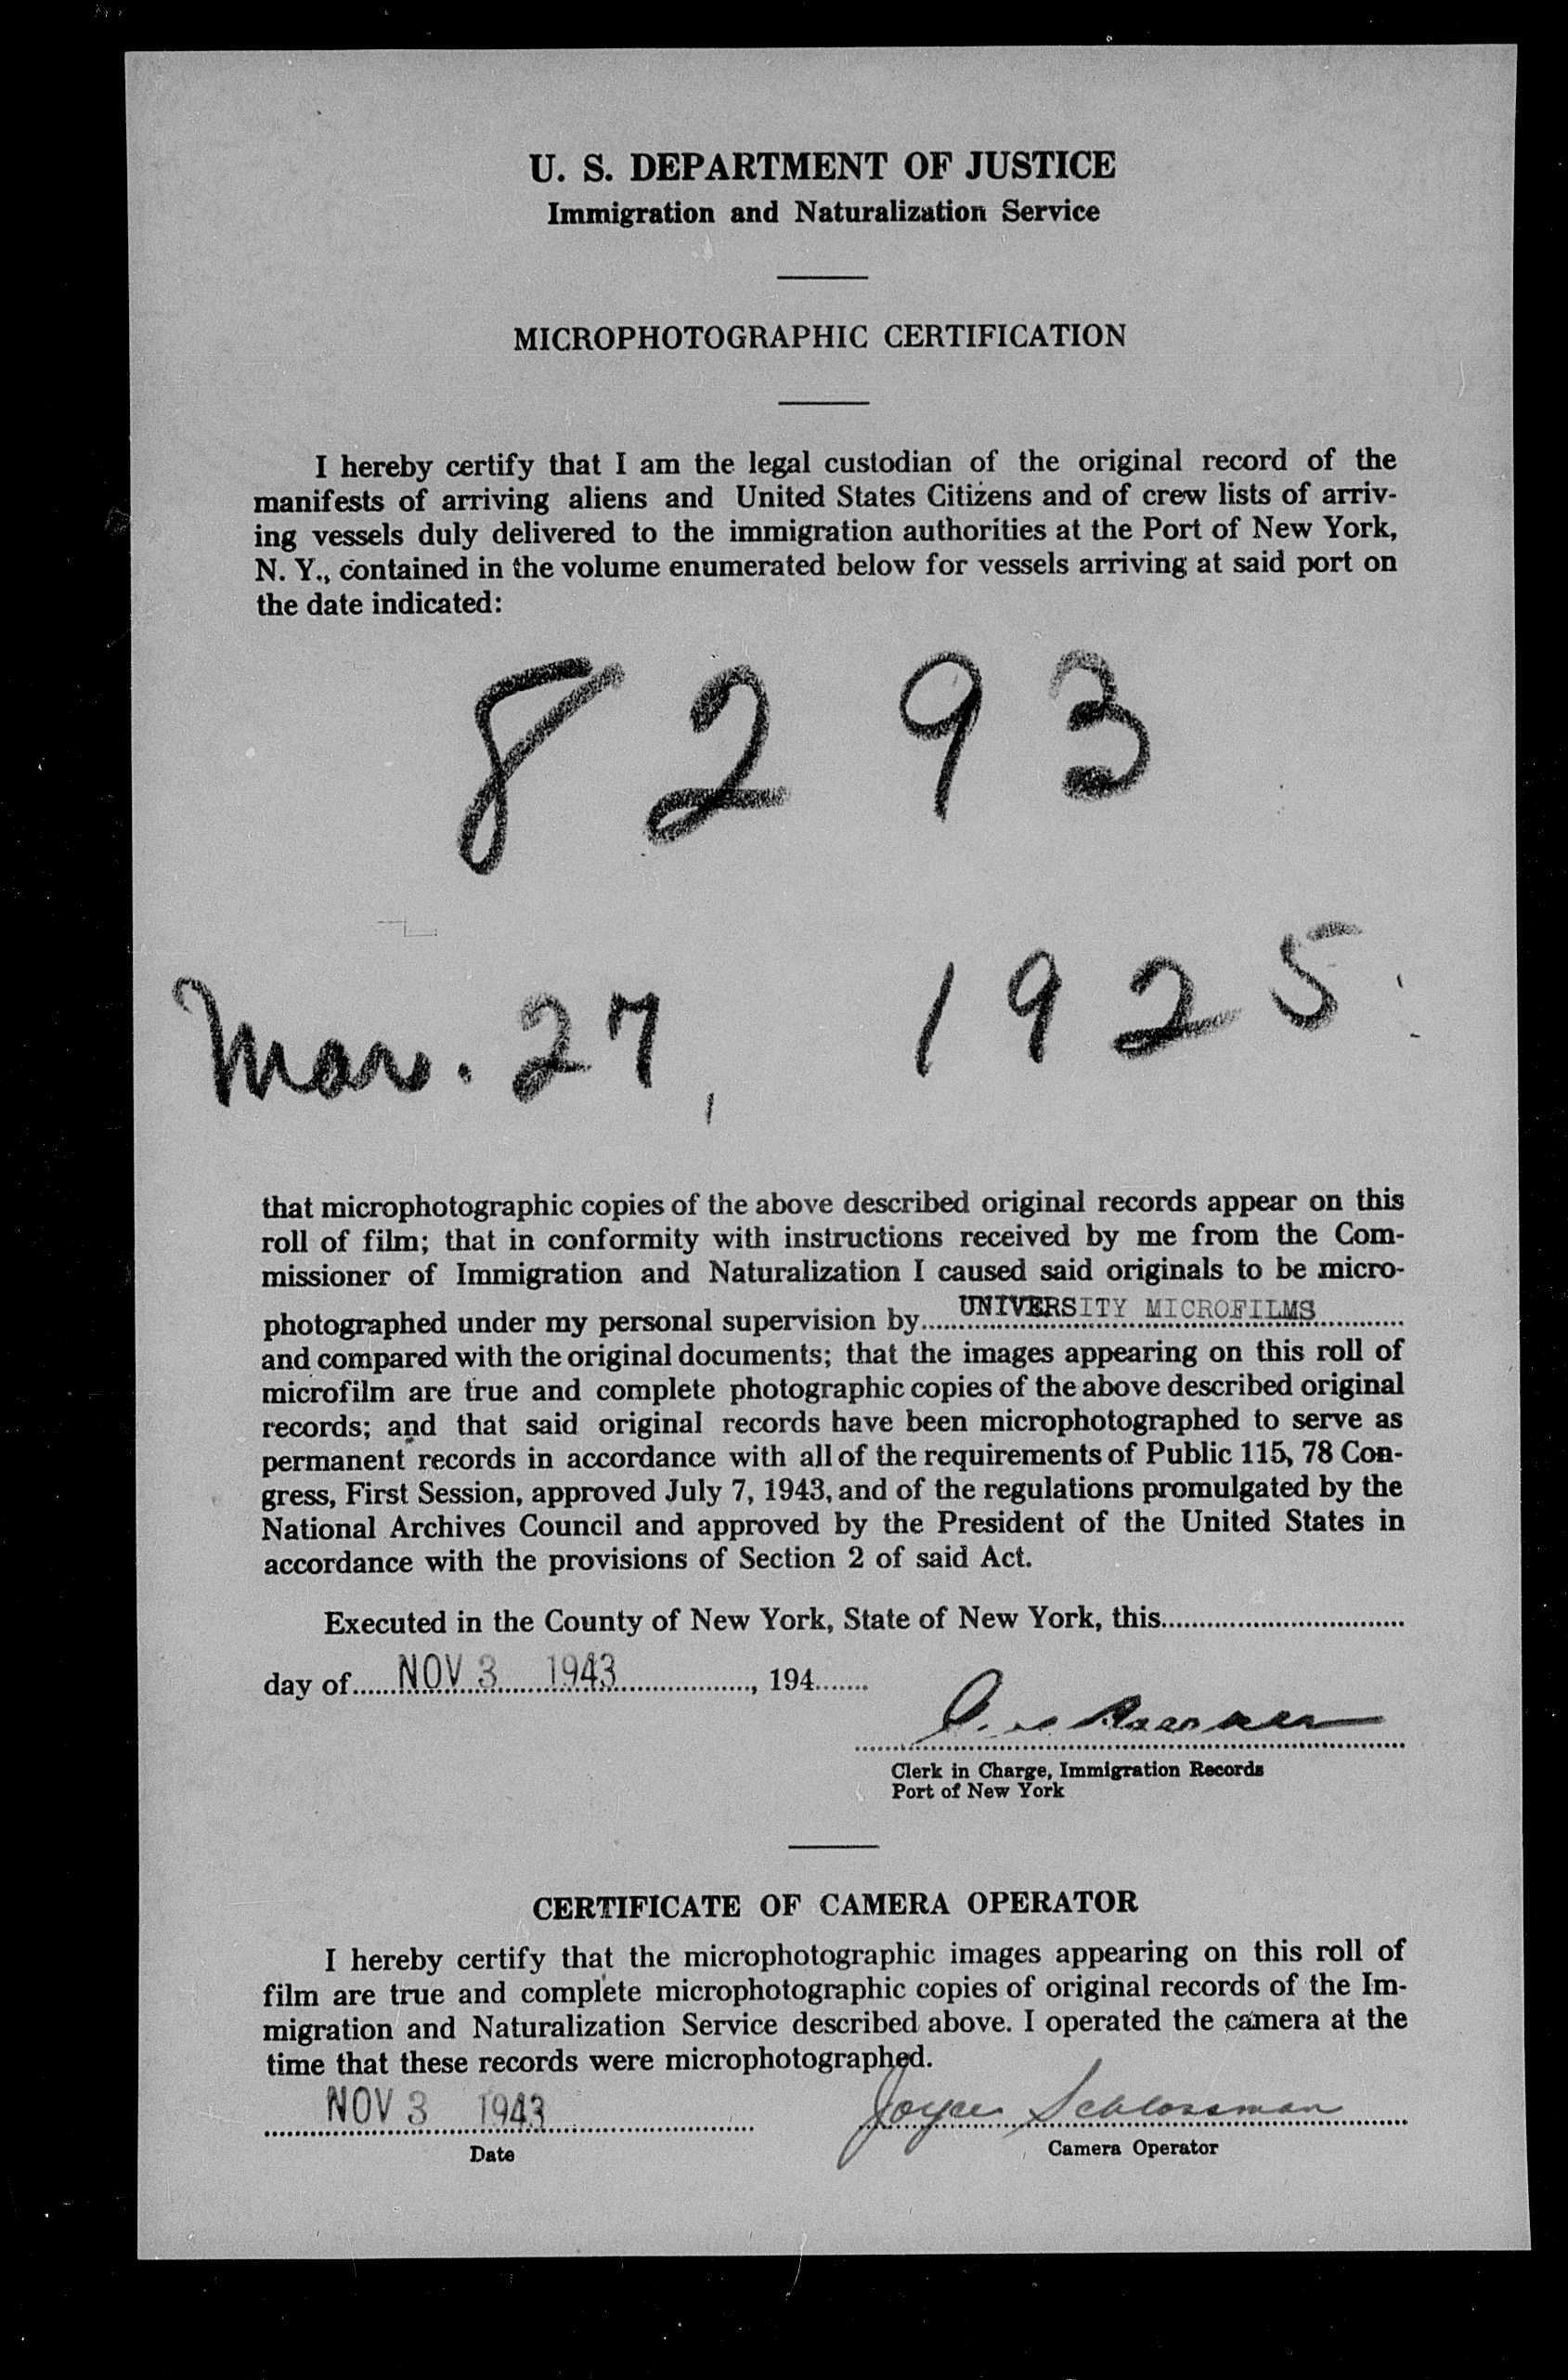 U. S. DEPARTMENT OF JUSTICE
Immigration and Naturalization Service
MICROPHOTOGRAPHIC CERTIFICATION
I hereby certify that I am the legal custodian of the original record of the
manifests of arriving aliens and United States Citizens and of crew lists of arriv-
ing vessels duly delivered to the immigration authorities at the Port of New York,
N. Y., contained in the volume enumerated below for vessels arriving at said port on
the date indicated:
8293
Mar. 27, 1925
that microphotographic copies of the above described original records appear on this
roll of film; that in conformity with instructions received by me from the Com-
missioner of Immigration and Naturalization I caused said originals to be micro-
photographed under my personal supervision by UNIVERSITY MICROFILMS
and compared with the original documents; that the images appearing on this roll of
microfilm are true and complete photographic copies of the above described original
records; and that said original records have been microphotographed to serve as
permanent records in accordance with all of the requirements of Public 115, 78 Con-
gress, First Session, approved July 7, 1943, and of the regulations promulgated by the
National Archives Council and approved by the President of the United States in
accordance with the provisions of Section 2 of said Act.
Executed in the County of New York, State of New York, this
day of NOV 3 1943, 194
Clerk in Charge, Immigration Records
Port of New York
CERTIFICATE OF CAMERA OPERATOR
I hereby certify that the microphotographic images appearing on this roll of
film are true and complete microphotographic copies of original records of the Im-
migration and Naturalization Service described above. I operated the camera at the
time that these records were microphotographed.
NOV 3 1943 Joyce Schlossman
Date Camera Operator